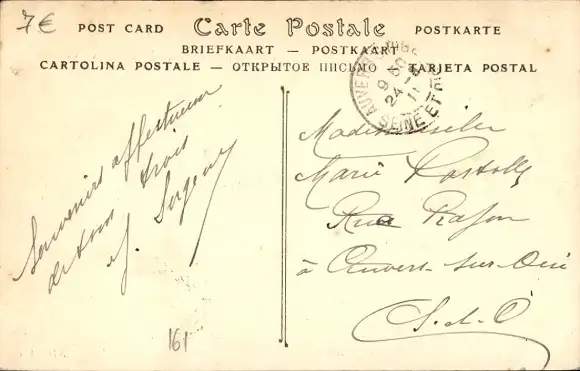 7€
POST CARD Carte Postale POSTKARTE
BRIEFKAART — POSTKAART
CARTOLINA POSTALE — ОТКРЫТОЕ ПИСЬМО — TARJETA POSTAL
AUVERS
9 30
24
11
SEINE ET OISE
Souvenirs affectueux
de tous trois
Mademoiselle
Marie
Rue
à Auvers-sur-Oise
S.-et-O
161